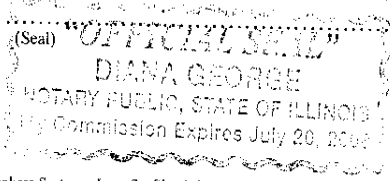 (Seal) "OFFICIAL SEAL"
DIANA GEORGE
NOTARY PUBLIC, STATE OF ILLINOIS
My Commission Expires July 20,